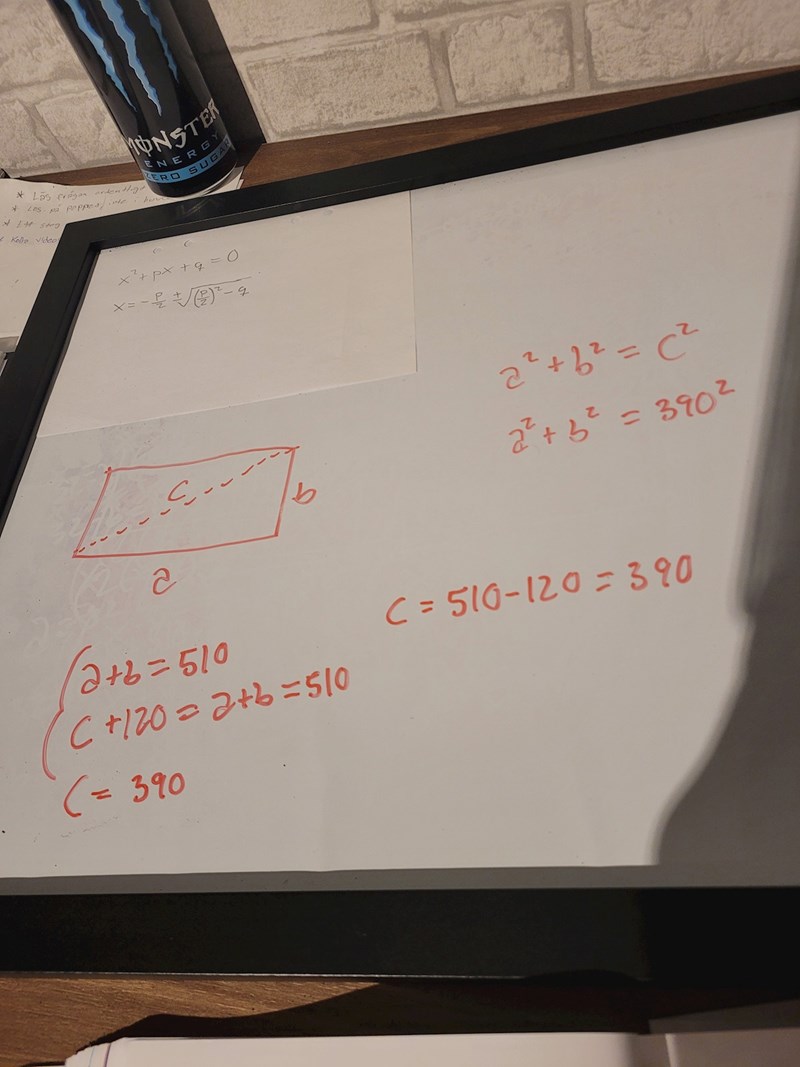 MONSTER
ENERGY
ZERO SUGAR
* Lös frågan
* Lös på papper, inte i
* Ett steg
Kolla video
x² + px + q = 0
x = -p/2 ± √((p/2)² - q)
a² + b² = c²
a² + b² = 390²
c
b
a
c = 510 - 120 = 390
a + b = 510
c + 120 = a + b = 510
c = 390